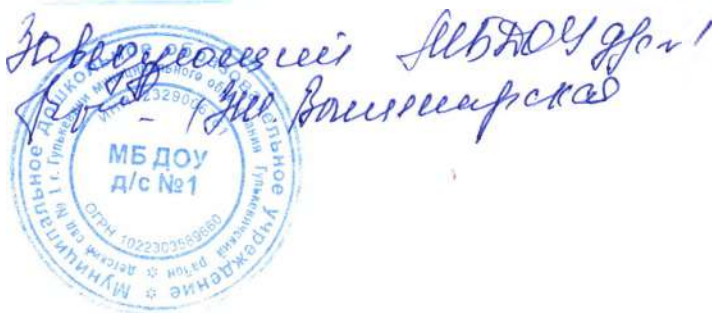 Заведующий МБДОУ д/с №1
Муниципальное дошкольное образовательное учреждение
детский сад № 1 г. Гулькевичи муниципального образования Гулькевичский район
ИНН 2329006
МБ ДОУ
д/с №1
ОГРН 1022303589660